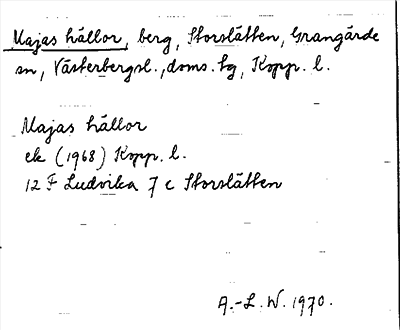 Majas hällor, berg, Storslätten, Grangärde
sn, Västerbergsl., doms. tg, Kopp. l.
Majas hällor
ek (1968) Kopp. l.
12 F Ludvika 7 c Storslätten
A.-L. W. 1970.